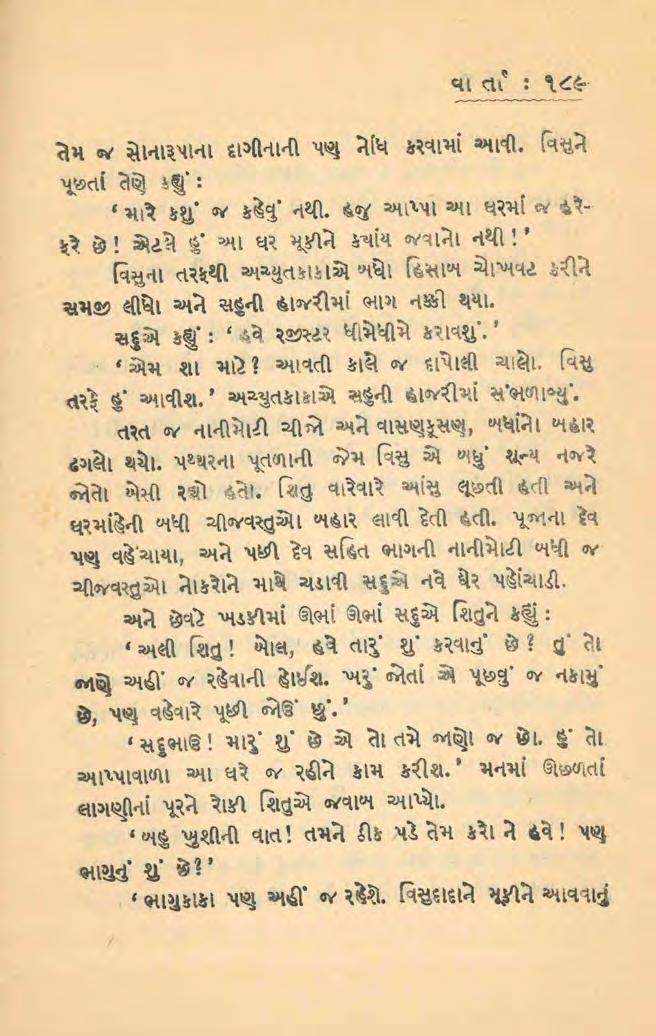 વાર્તા : ૧૮૯
તેમ જ સોનારૂપાના દાગીનાની પણ નેાંધ કરવામાં આવી. વિસુને
પૂછતાં તેણે કહ્યું :
‘મારે કશું જ કહેવું નથી. હજુ આપ્પા આ ઘરમાં જ હરે-
ફરે છે! એટલે હું આ ઘર મૂકીને કયાંય જવાનો નથી!’
વિસુના તરફથી અચ્યુતકાકાએ બધો હિસાબ ચોખવટ કરીને
સમજી લીધો અને સહુની હાજરીમાં ભાગ નક્કી થયા.
સદુએ કહ્યું : ‘હવે રજીસ્ટર ધીમેધીમે કરાવશું.’
‘એમ શા માટે? આવતી કાલે જ દાપોલી ચાલો. વિસુ
તરફે હું આવીશ.’ અચ્યુતકાકાએ સહુની હાજરીમાં સંભળાવ્યું.
તરત જ નાનીમોટી ચીજો અને વાસણકૂસણ, બધાંનો બહાર
ઢગલો થયો. પથ્થરના પૂતળાની જેમ વિસુ એ બધું શૂન્ય નજરે
જોતો બેસી રહ્યો હતો. શિતુ વારેવારે આંસુ લૂછતી હતી અને
ઘરમાંહેની બધી ચીજવસ્તુઓ બહાર લાવી દેતી હતી. પૂજાના દેવ
પણ વહેંચાયા, અને પછી દેવ સહિત ભાગની નાનીમોટી બધી જ
ચીજવસ્તુઓ નોકરોને માથે ચડાવી સદુએ નવે ઘેર પહોંચાડી.
અને છેવટે ખડકીમાં ઊભાં ઊભાં સદુએ શિતુને કહ્યું :
‘અલી શિતુ! બોલ, હવે તારું શું કરવાનું છે? તું તો
જાણે અહીં જ રહેવાની હોઈશ. ખરું જોતાં એ પૂછવું જ નકામું
છે, પણ વહેવારે પૂછી જોઉં છું.’
‘સદુભાઉ! મારું શું છે એ તો તમે જાણો જ છો. હું તો
આપ્પાવાળા આ ઘરે જ રહીને કામ કરીશ.’ મનમાં ઊછળતાં
લાગણીનાં પૂરને રોકી શિતુએ જવાબ આપ્યો.
‘બહુ ખુશીની વાત! તમને ઠીક પડે તેમ કરો ને હવે! પણ
ભાગુનું શું છે?’
‘ભાગુકાકા પણ અહીં જ રહેશે. વિસુદાદાને મૂકીને આવવાનું